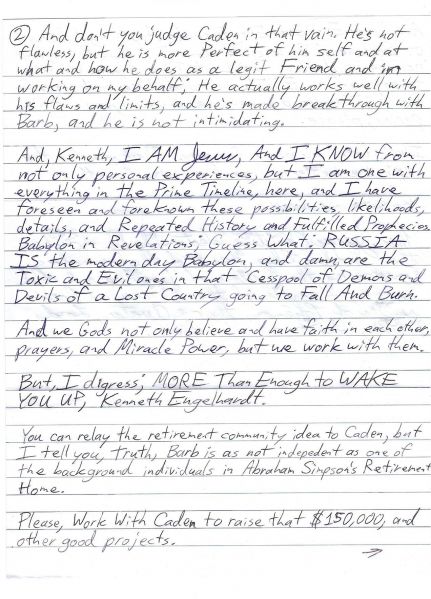 ② And don't you judge Caden in that vain. He's not
flawless, but he is more Perfect of him self and at
what and how he does as a legit Friend and in
working on my behalf; He actually works well with
his flaws and limits, and he's made breakthrough with
Barb, and he is not intimidating.
And, Kenneth, I AM Jesus, And I KNOW from
not only personal experiences, but I am one with
everything in the Prime Timeline, here, and I have
foreseen and foreknown these possibilities, likelihoods,
details, and Repeated History and Fulfilled Prophecies.
Babylon in Revelations; Guess What; RUSSIA
IS the modern day Babylon, and damn, are the
Toxic and Evil ones in that Cesspool of Demons and
Devils of a Lost Country going to Fall And Burn.
And we Gods not only believe and have faith in each other,
prayers, and Miracle Power, but we work with them.
But, I digress; MORE Than Enough to WAKE
YOU UP, Kenneth Engelhardt.
You can relay the retirement community idea to Caden, but
I tell you, Truth, Barb is as not indepedent as one of
the background individuals in Abraham Simpson's Retirement
Home.
Please, Work With Caden to raise that $150,000, and
other good projects.
→